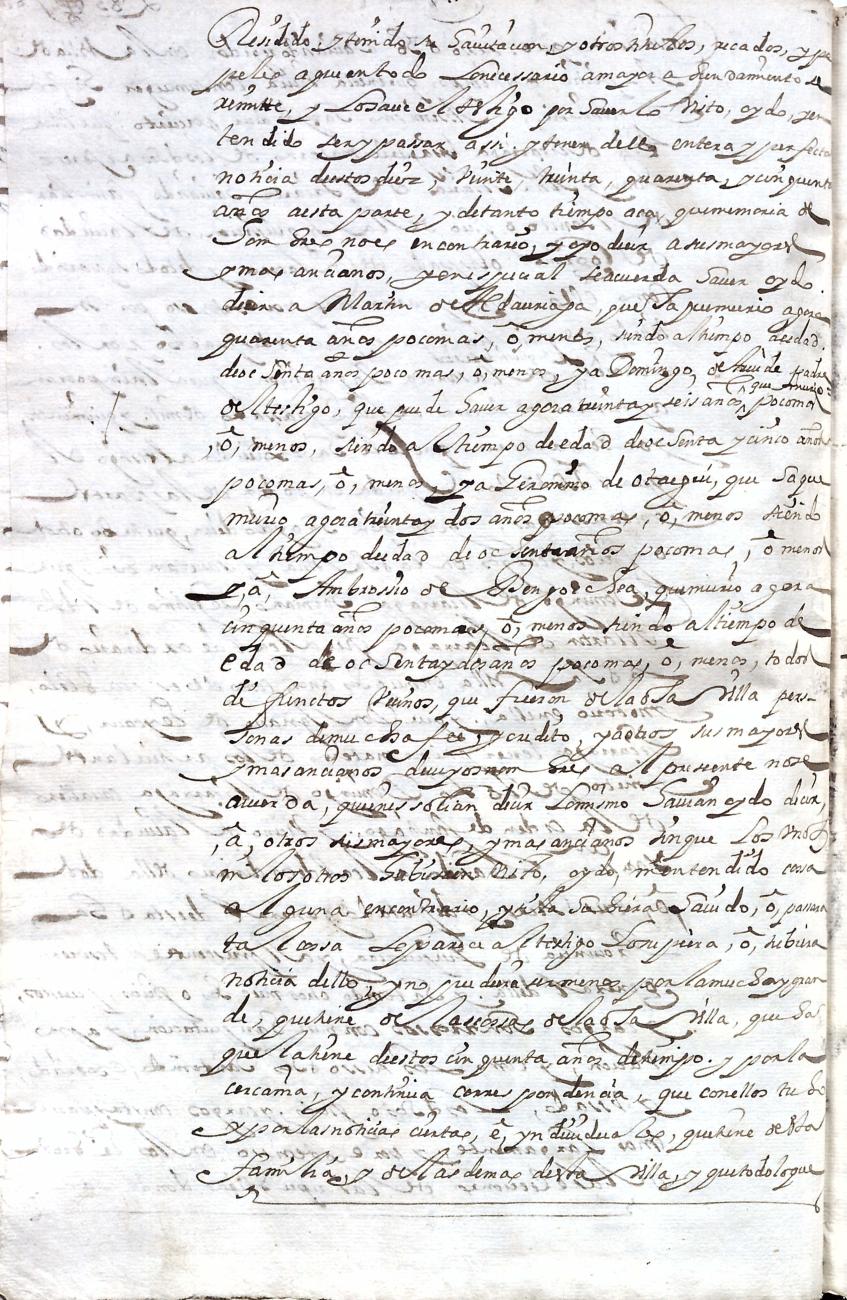 Residido y tenido su havitacion, y otros titulos, recados, y pa
peles a que en todo lo necessario a mayor a bundamiento se
remitte, y lo save el testigo por haverlo visto, oydo, y en
tendido ser y passar assi, y tener dello entera y perfecta
noticia de estos diez, veinte, treinta, quarenta, y cinquenta
años a esta parte, y de tanto tiempo aca, que memoria de
hombres no es en contrario, y oyo decir a sus mayores
y mas ancianos, y en especial se acuerda haver oydo
decir a Martin de que ha que murio agora
quarenta años poco mas, ô, menos, siendo al tiempo de edad
de ochenta años poco mas, ô, menos, y a Domingo, de padre
del testigo, que puede haver agora treinta y seis años, que murio poco mas
, ô, menos, siendo al tiempo de edad de ochenta y cinco años
poco mas, ô, menos, y a Geronimo de otaegui, que ha que
murio agora treinta y dos años poco mas, ô, menos siendo
al tiempo de edad de ochenta años poco mas, ô menos
y, â, Ambrossio de Bengoechea, que murio agora
cinquenta años poco mas, ô, menos siendo al tiempo de
edad de ochenta y dos años poco mas, ô, menos, todos
defunctos vecinos, que fueron de la dha Villa per-
sonas de mucha fee, y credito, y a otros sus mayores
y mas ancianos de cuyos nombres al presente no se
acuerda, quienes solian decir lo mismo havian oydo decir,
, â, otros sus mayores, y mas ancianos sin que los unos
ni los otros hubiesen visto, oydo, ni entendido cosa
alguna en contrario, y si la hubiera havido, ô, passara
tal cossa le parece al testigo lo supiera, ô, tubiera
noticia dello, y no pudiera ser menos por la mucha y gran
de, que tiene de las cossas de la dha Villa, que ha
que la tiene de estos cinquenta años de tiempo. y por la
cercania, y continua correspondencia, que con ellos tubo
y por las noticias ciertas, ê, yndividuales, que tiene desta
Familia, y de las demas desta Villa, y que todo lo que